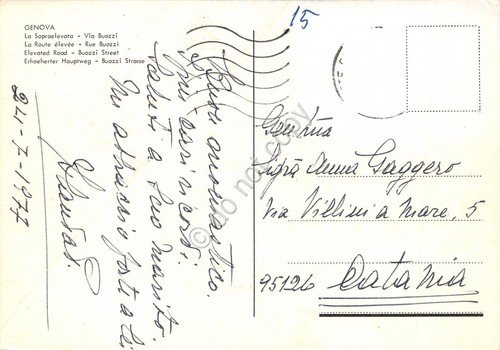 GENOVA
La Sopraelevata - Via Buozzi
La Route élevée - Rue Buozzi
Elevated Road - Buozzi Street
Erhoeherter Hauptweg - Buozzi Strasse
15
Buon onomastico.
I più cari ricordi.
Saluti a Suo marito.
Un abbraccio forte a Lei
24-7-1977
Gent.ma
Sig.ra Anna Gaggero
Via Villini a Mare, 5
95126 Catania
do not copy